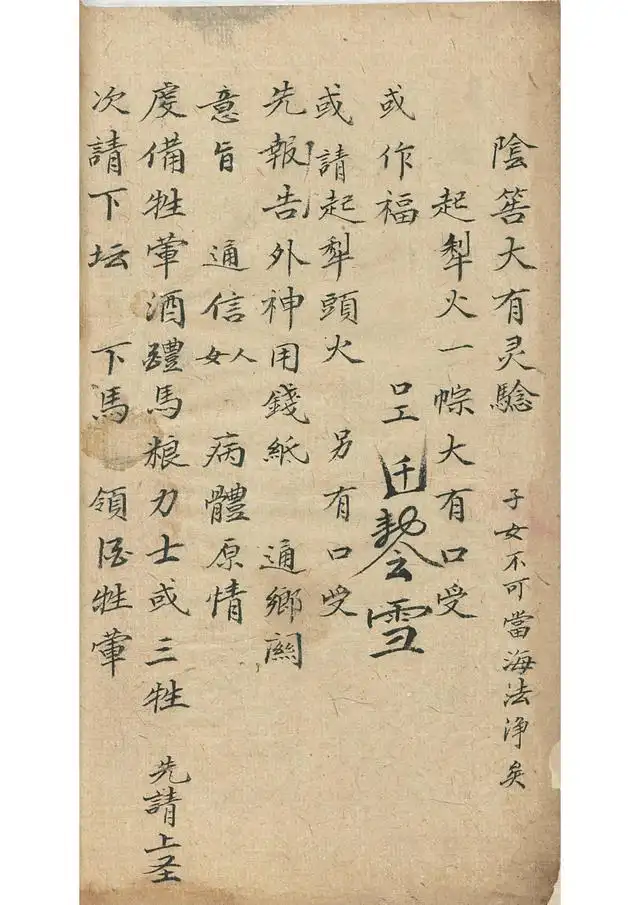 陰筶大有灵驗 子女不可當海法淨矣
起犁火一𫁂大有口受
或作福
或請起犁頭火 另有口受
先報告外神用錢紙 通鄉關
意旨 通信女人 病體原情
虔備牲葷酒醴馬粮力士或三牲 先請上圣
次請下坛 下馬 領 牲葷